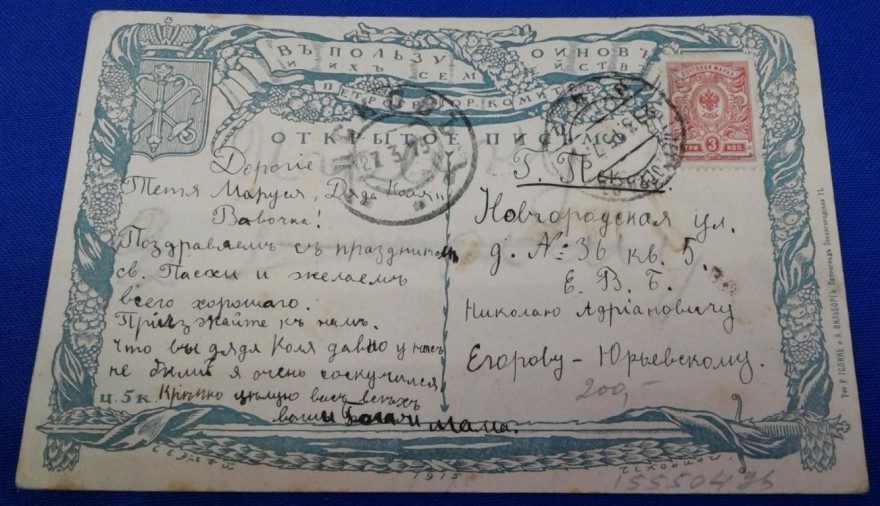 ВЪ ПОЛЬЗУ ВОИНОВЪ
И ИХЪ СЕМЕЙСТВЪ
ПЕТРОГР. ГОР. КОМИТЕТА
ОТКРЫТОЕ ПИСЬМО
ПОЧТОВАЯ МАРКА
3
ТРИ КОП.
ПСКОВЪ
27.3.15
Дорогіе
Тетя Маруся, Дядя Коля и
Вавочка!
Поздравляемъ съ праздникомъ
св. Пасхи и желаемъ
всего хорошаго.
Пріѣзжайте къ намъ.
Что вы дядя Коля давно у насъ
не были я очень соскучился.
Крѣпко цѣлую васъ всѣхъ
ваши и мама.
Г. Псковъ
Новгородская ул.
д. № 36 кв. 5.
Е. В. Б.
Николаю Адріановичу
Егорову-Юрьевскому.
200,-
Ц. 5 к.
СЕРГѢЙ
1915
ЧЕХОНИНЪ
155.504
Тип. Р. ГОЛИКЕ и А. ВИЛЬБОРГЪ. Петроградъ, Звенигородская 11.